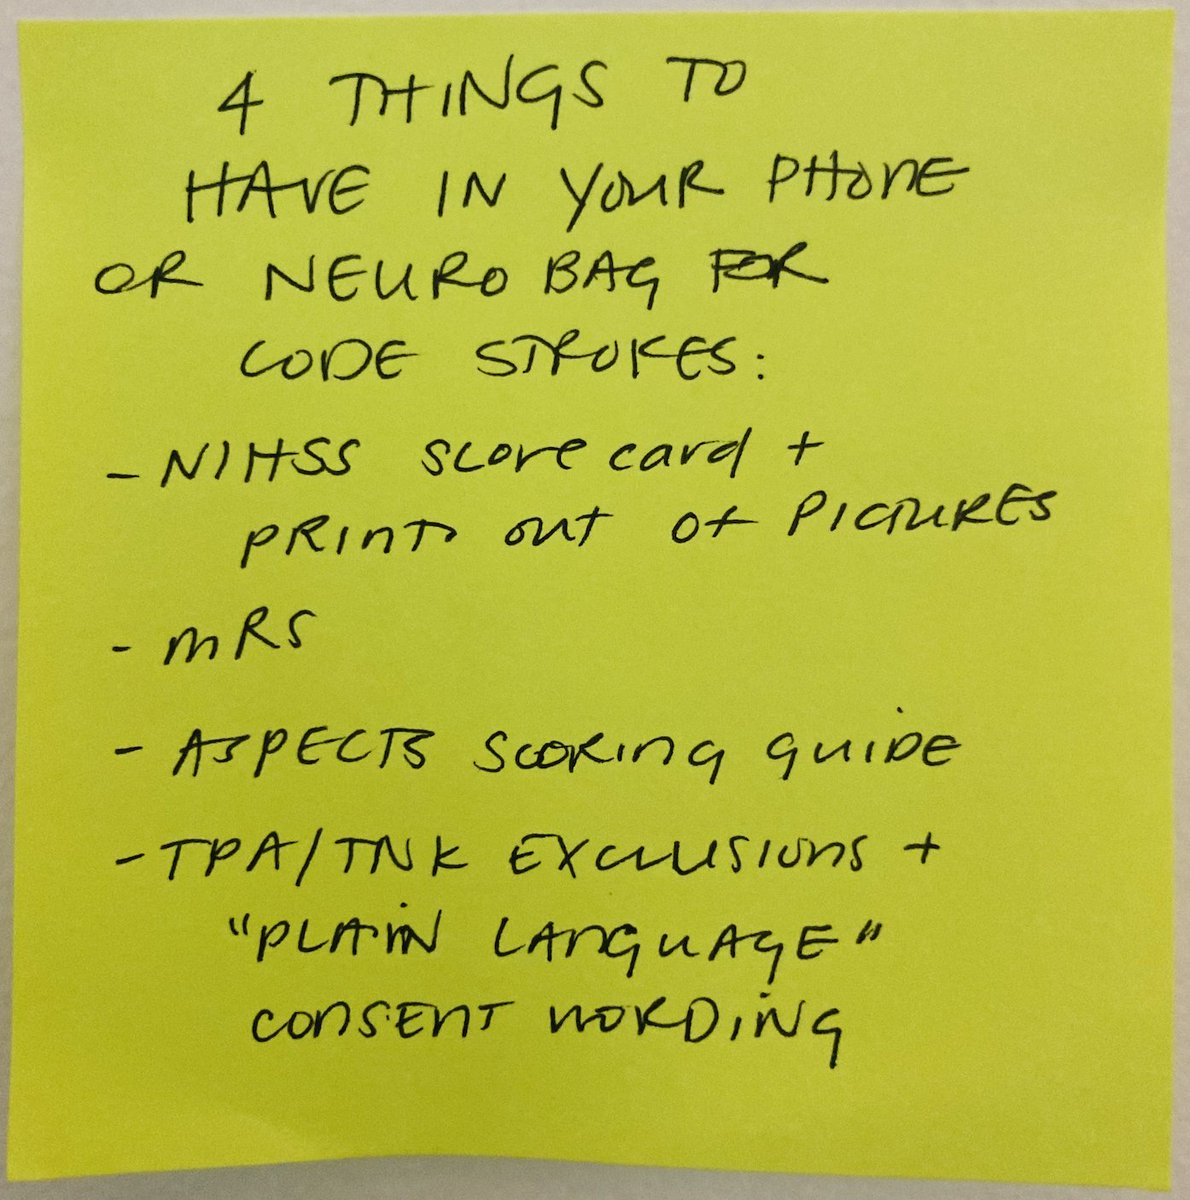 4 THINGS TO
HAVE IN YOUR PHONE
OR NEURO BAG FOR
CODE STROKES:
- NIHSS score card +
PRINT out of PICTURES
- mRS
- ASPECTS scoring guide
- TPA/TNK EXCLUSIONS +
"PLAIN LANGUAGE"
CONSENT WORDING